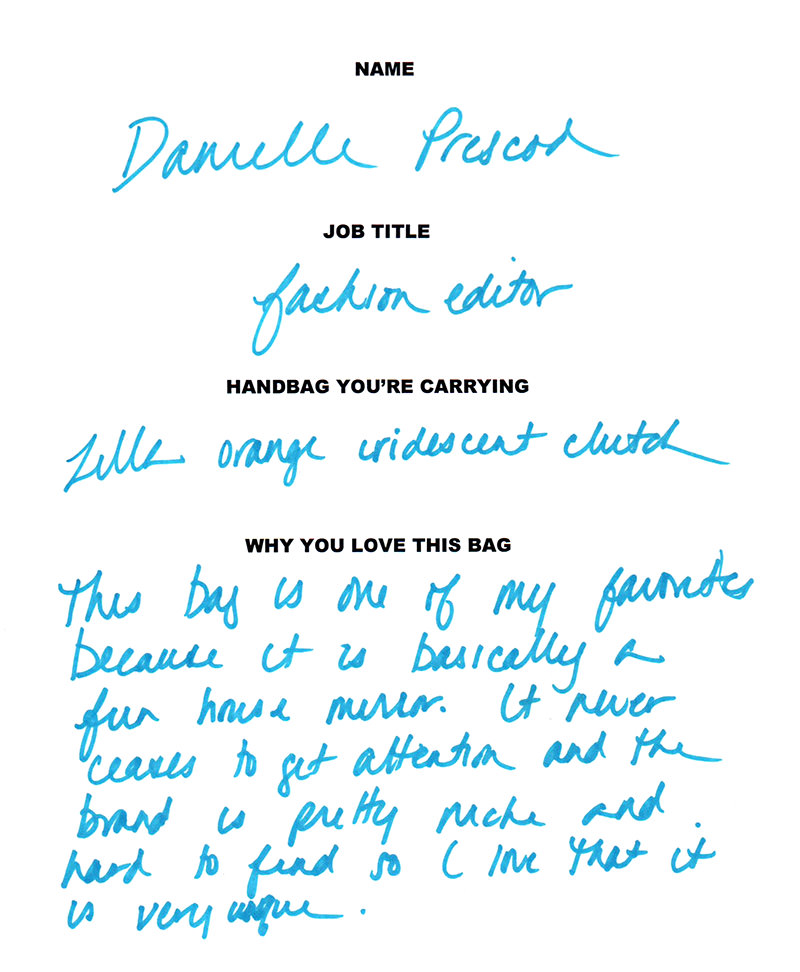 NAME
Danielle Prescod
JOB TITLE
fashion editor
HANDBAG YOU'RE CARRYING
Zilla orange iridescent clutch
WHY YOU LOVE THIS BAG
This bag is one of my favorites
because it is basically a
fun house mirror. It never
ceases to get attention and the
brand is pretty niche and
hard to find so I love that it
is very unique.